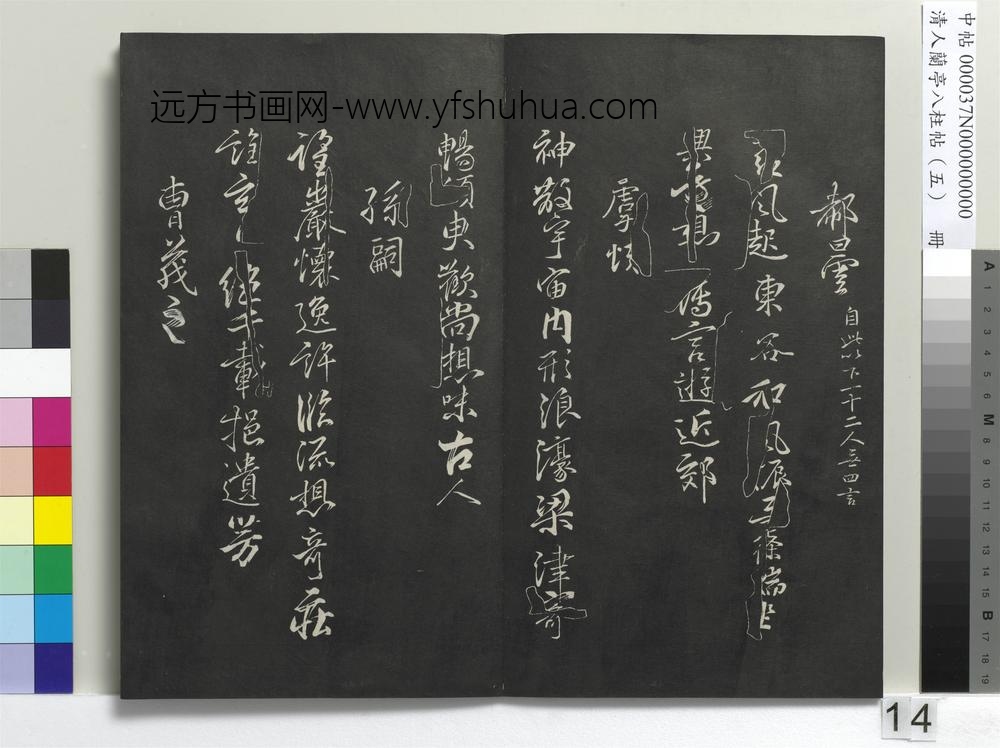 郗曇 自此以下一十二人無四言
風起東谷和氣振柔條端坐
興遠想薄言遊近郊
虞悅
神散宇宙內形浪濠梁津寄
暢須臾歡尚想味古人
孫嗣
望巖懷逸許臨流想奇莊
誰云絕千載挹遺芳
曹茂之
远方书画网-www.yfshuhua.com
中帖 000037N000000000
清人蘭亭八柱帖(五) 冊
14
A 1 2 3 4 5 6 M 8 9 10 11 12 13 14 15 B 17 18 19